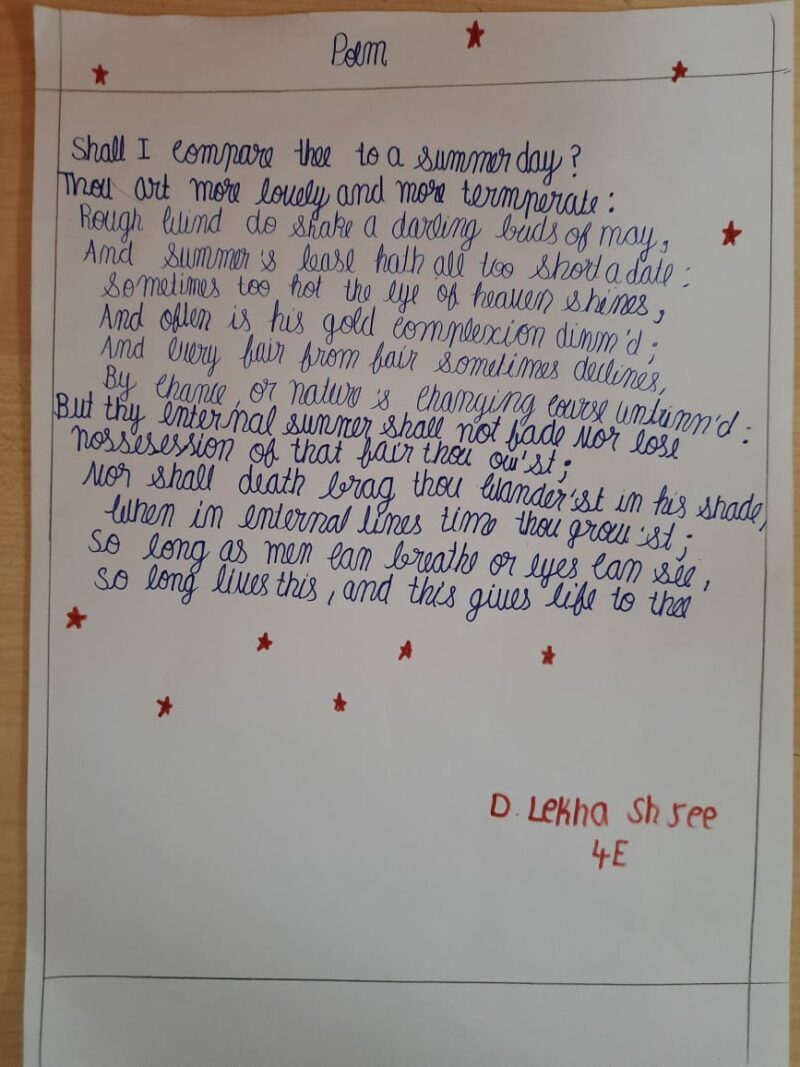 Poem
Shall I compare thee to a summer day?
Thou art more lovely and more termperate:
Rough wind do shake a darling buds of may,
And summer's lease hath all too short a date:
sometimes too hot the eye of heaven shines,
And often is his gold complexion dinm'd;
And every fair from fair sometimes declines,
By chance, or nature's changing course untrinn'd:
But thy enternal sunner shall not fade Nor lose
nossesession of that fair thou ow'st;
Nor shall death brag thou wander'st in his shade,
When in enternal lines time thou grow'st;
So long as men can breathe or eyes can see,
so long lives this, and this gives life to thee
D. Lekha Shree
4E